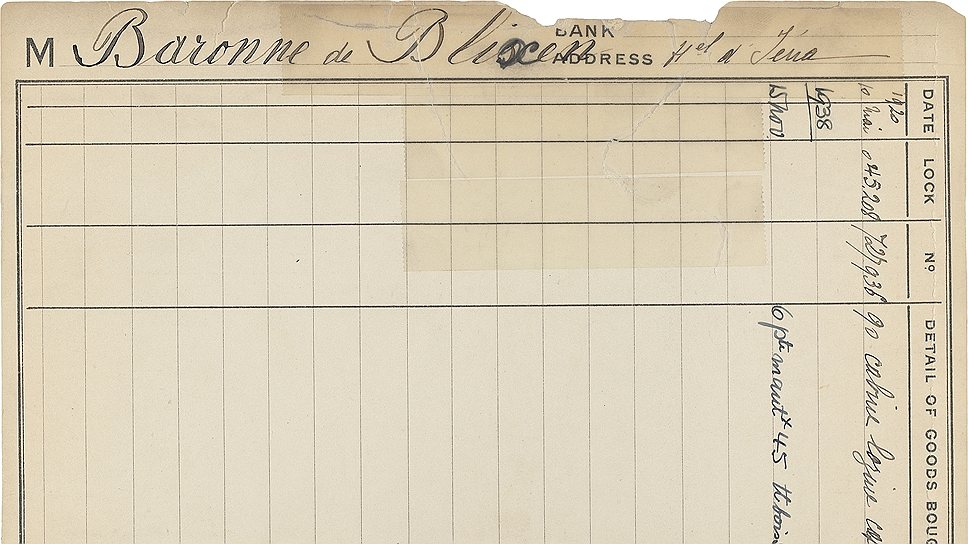 M Baronne de Blixen
BANK
ADDRESS Hel d'Iéna
DATE LOCK Nº DETAIL OF GOODS BOUG
1920
10 Mai 045.208 729936 90 cabine lozine
1938
15 nov 6 pts mautx 45 tt bois